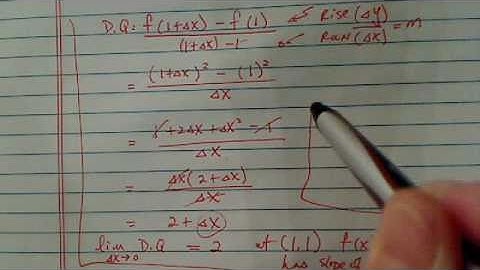 D.Q: f(1+Δx) - f(1) / (1+Δx) - 1 ← Rise (Δy) / ← Run (Δx) = m
= (1+Δx)² - (1)² / Δx
= 1 + 2Δx + Δx² - 1 / Δx
= Δx (2+Δx) / Δx
= 2 + Δx
lim Δx→0 D.Q = 2 at (1,1) f(x
has slope of